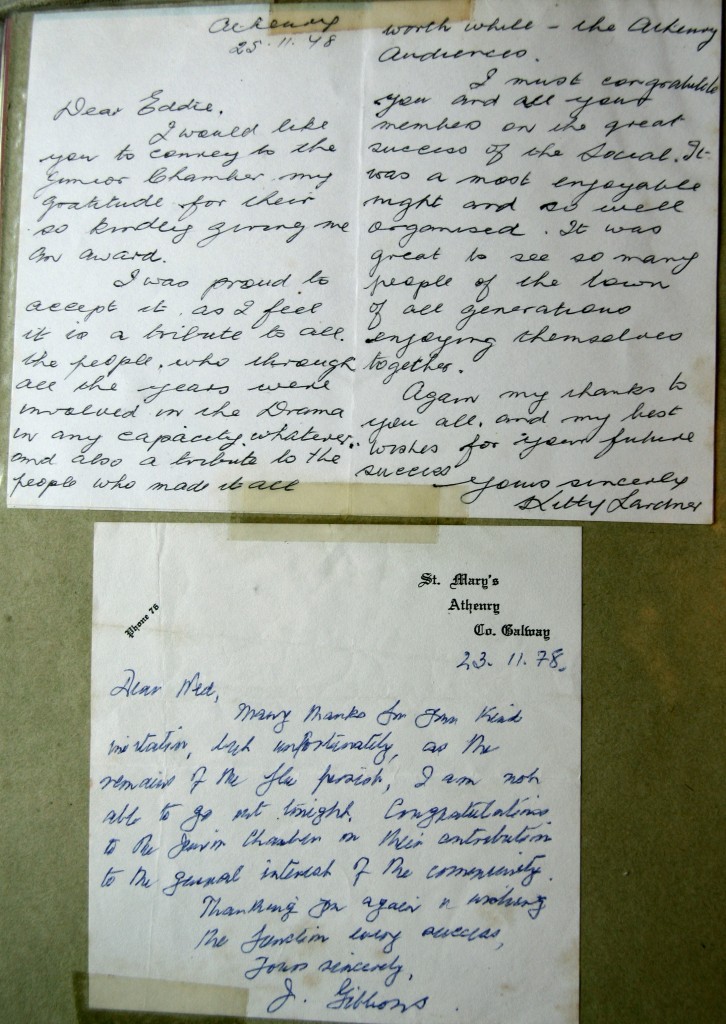 Athenry
25.11.78
Dear Eddie,
I would like
you to convey to the
Junior Chamber my
gratitude for their
so kindly giving me
an award.
I was proud to
accept it as I feel
it is a tribute to all
the people, who through
all the years were
involved in the Drama
in any capacity whatever.
and also a tribute to the
people who made it all
worth while - the Athenry
Audiences.
I must congratulate
you and all your
members on the great
success of the Social. It
was a most enjoyable
night and so well
organised. It was
great to see so many
people of the town
of all generations
enjoying themselves
together.
Again my thanks to
you all, and my best
wishes for your future
success
Yours sincerely
Kitty Lardner
Phone 76
St. Mary's
Athenry
Co. Galway
23.11.78.
Dear Ned,
Many thanks for your kind
invitation, but unfortunately, as the
remains of the flu persist, I am not
able to go out tonight. Congratulations
to the Junior Chamber on their contribution
to the general interest of the community.
Thanking you again & wishing
the function every success,
Yours sincerely,
J. Gibbons.